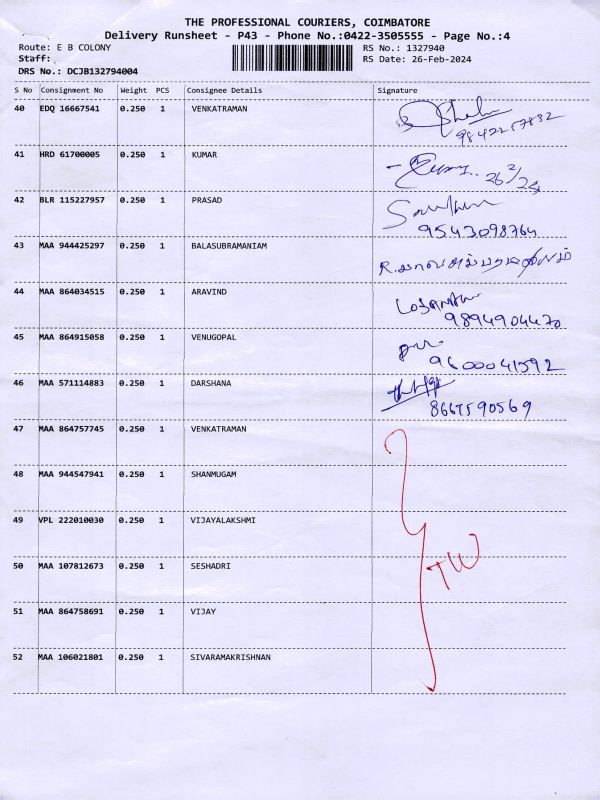 THE PROFESSIONAL COURIERS, COIMBATORE
Delivery Runsheet - P43 - Phone No.:0422-3505555 - Page No.:4
Route: E B COLONY RS No.: 1327940
Staff: RS Date: 26-Feb-2024
DRS No.: DCJB132794004
S No Consignment No Weight PCS Consignee Details Signature
40 EDQ 16667541 0.250 1 VENKATRAMAN
9842257832
41 HRD 61700005 0.250 1 KUMAR
26/2/24
42 BLR 115227957 0.250 1 PRASAD
9543098764
43 MAA 944425297 0.250 1 BALASUBRAMANIAM
R.
44 MAA 864034515 0.250 1 ARAVIND
9894904470
45 MAA 864915058 0.250 1 VENUGOPAL
9600041592
46 MAA 571114883 0.250 1 DARSHANA
8667590569
47 MAA 864757745 0.250 1 VENKATRAMAN
48 MAA 944547941 0.250 1 SHANMUGAM
49 VPL 222010030 0.250 1 VIJAYALAKSHMI
50 MAA 107812673 0.250 1 SESHADRI
TW
51 MAA 864758691 0.250 1 VIJAY
52 MAA 106021801 0.250 1 SIVARAMAKRISHNAN